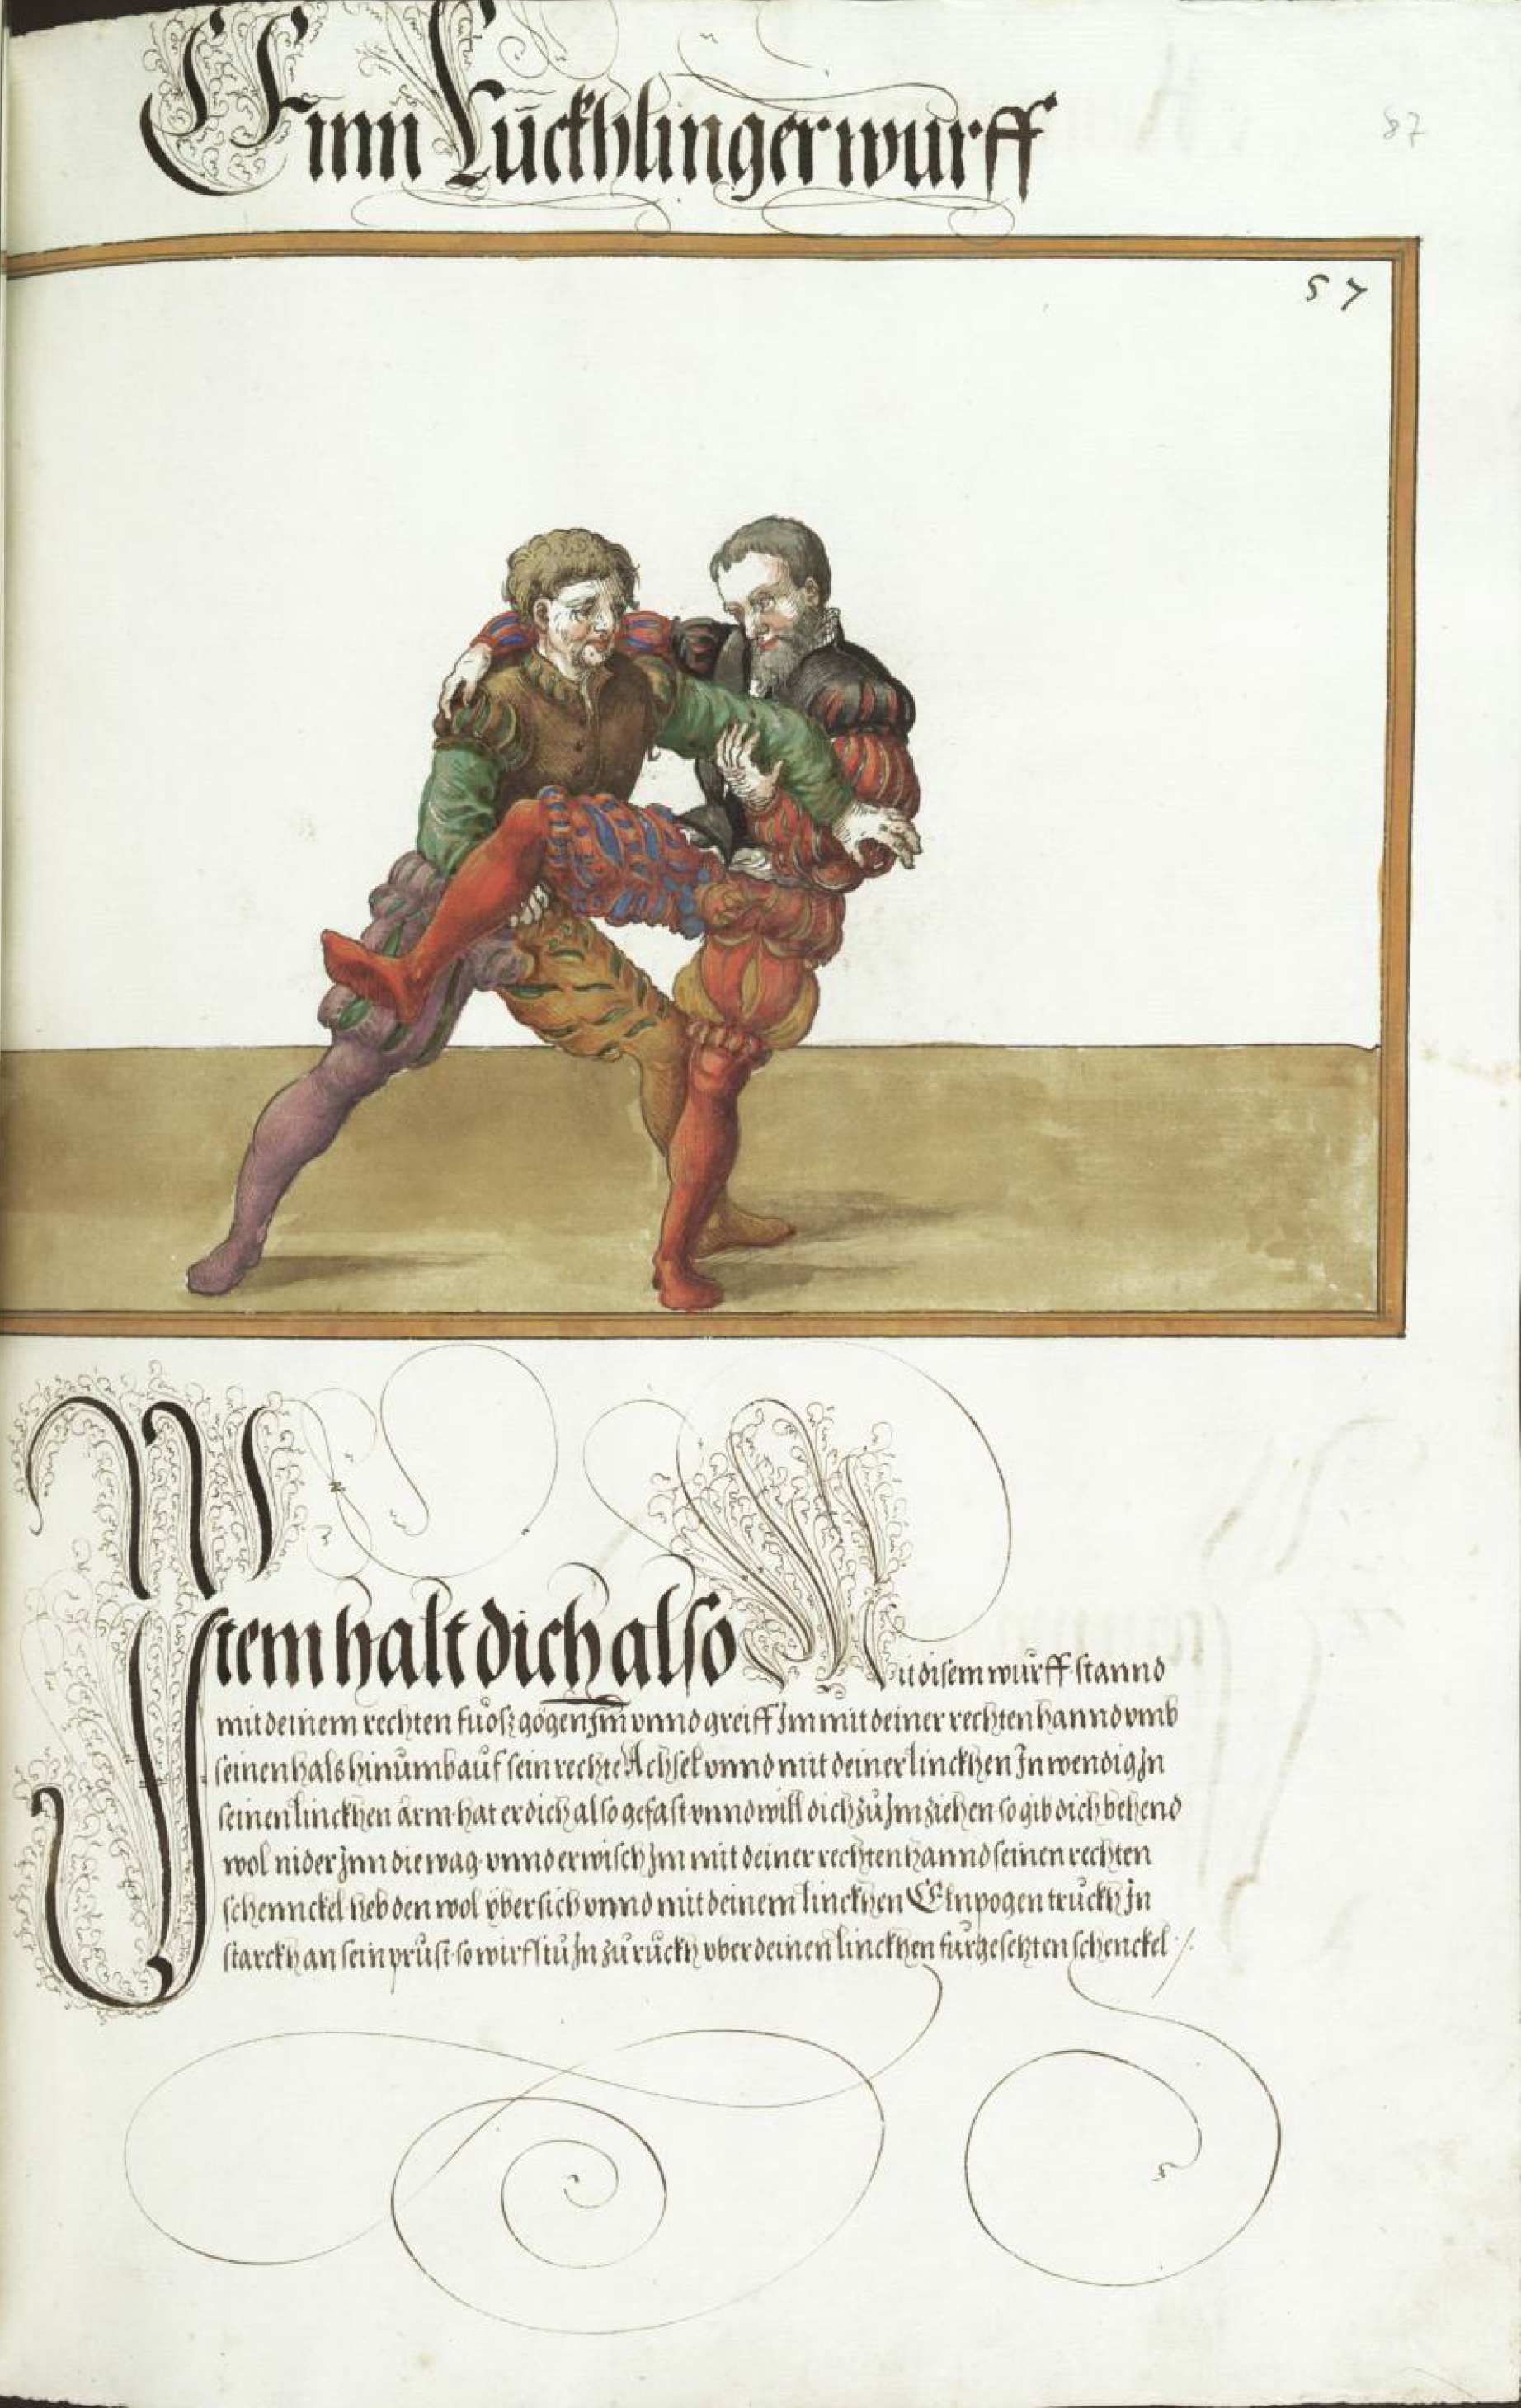 Einn Ruckhlinger wurff
87
57
Item halt dich also Zu disem wurff stannd
mit deinem rechten fuosz gögen Im vnnd greiff Im mit deiner rechten hannd vmb
seinen hals hinumb auf sein rechte Achsel vnnd mit deiner linckhen Inwendig In
seinen linckhen arm hat er dich also gefast vnnd will dich zu Im ziehen so gib dich behend
wol nider Inn die wag vnnd erwisch Im mit deiner rechten hannd seinen rechten
schennckel heb den wol vber sich vnnd mit deinem linckhen Elnpogen truckh In
starckh an sein prust so wirfstu In zu ruckh vber deinen linckhen furgesetzten schenckel /.